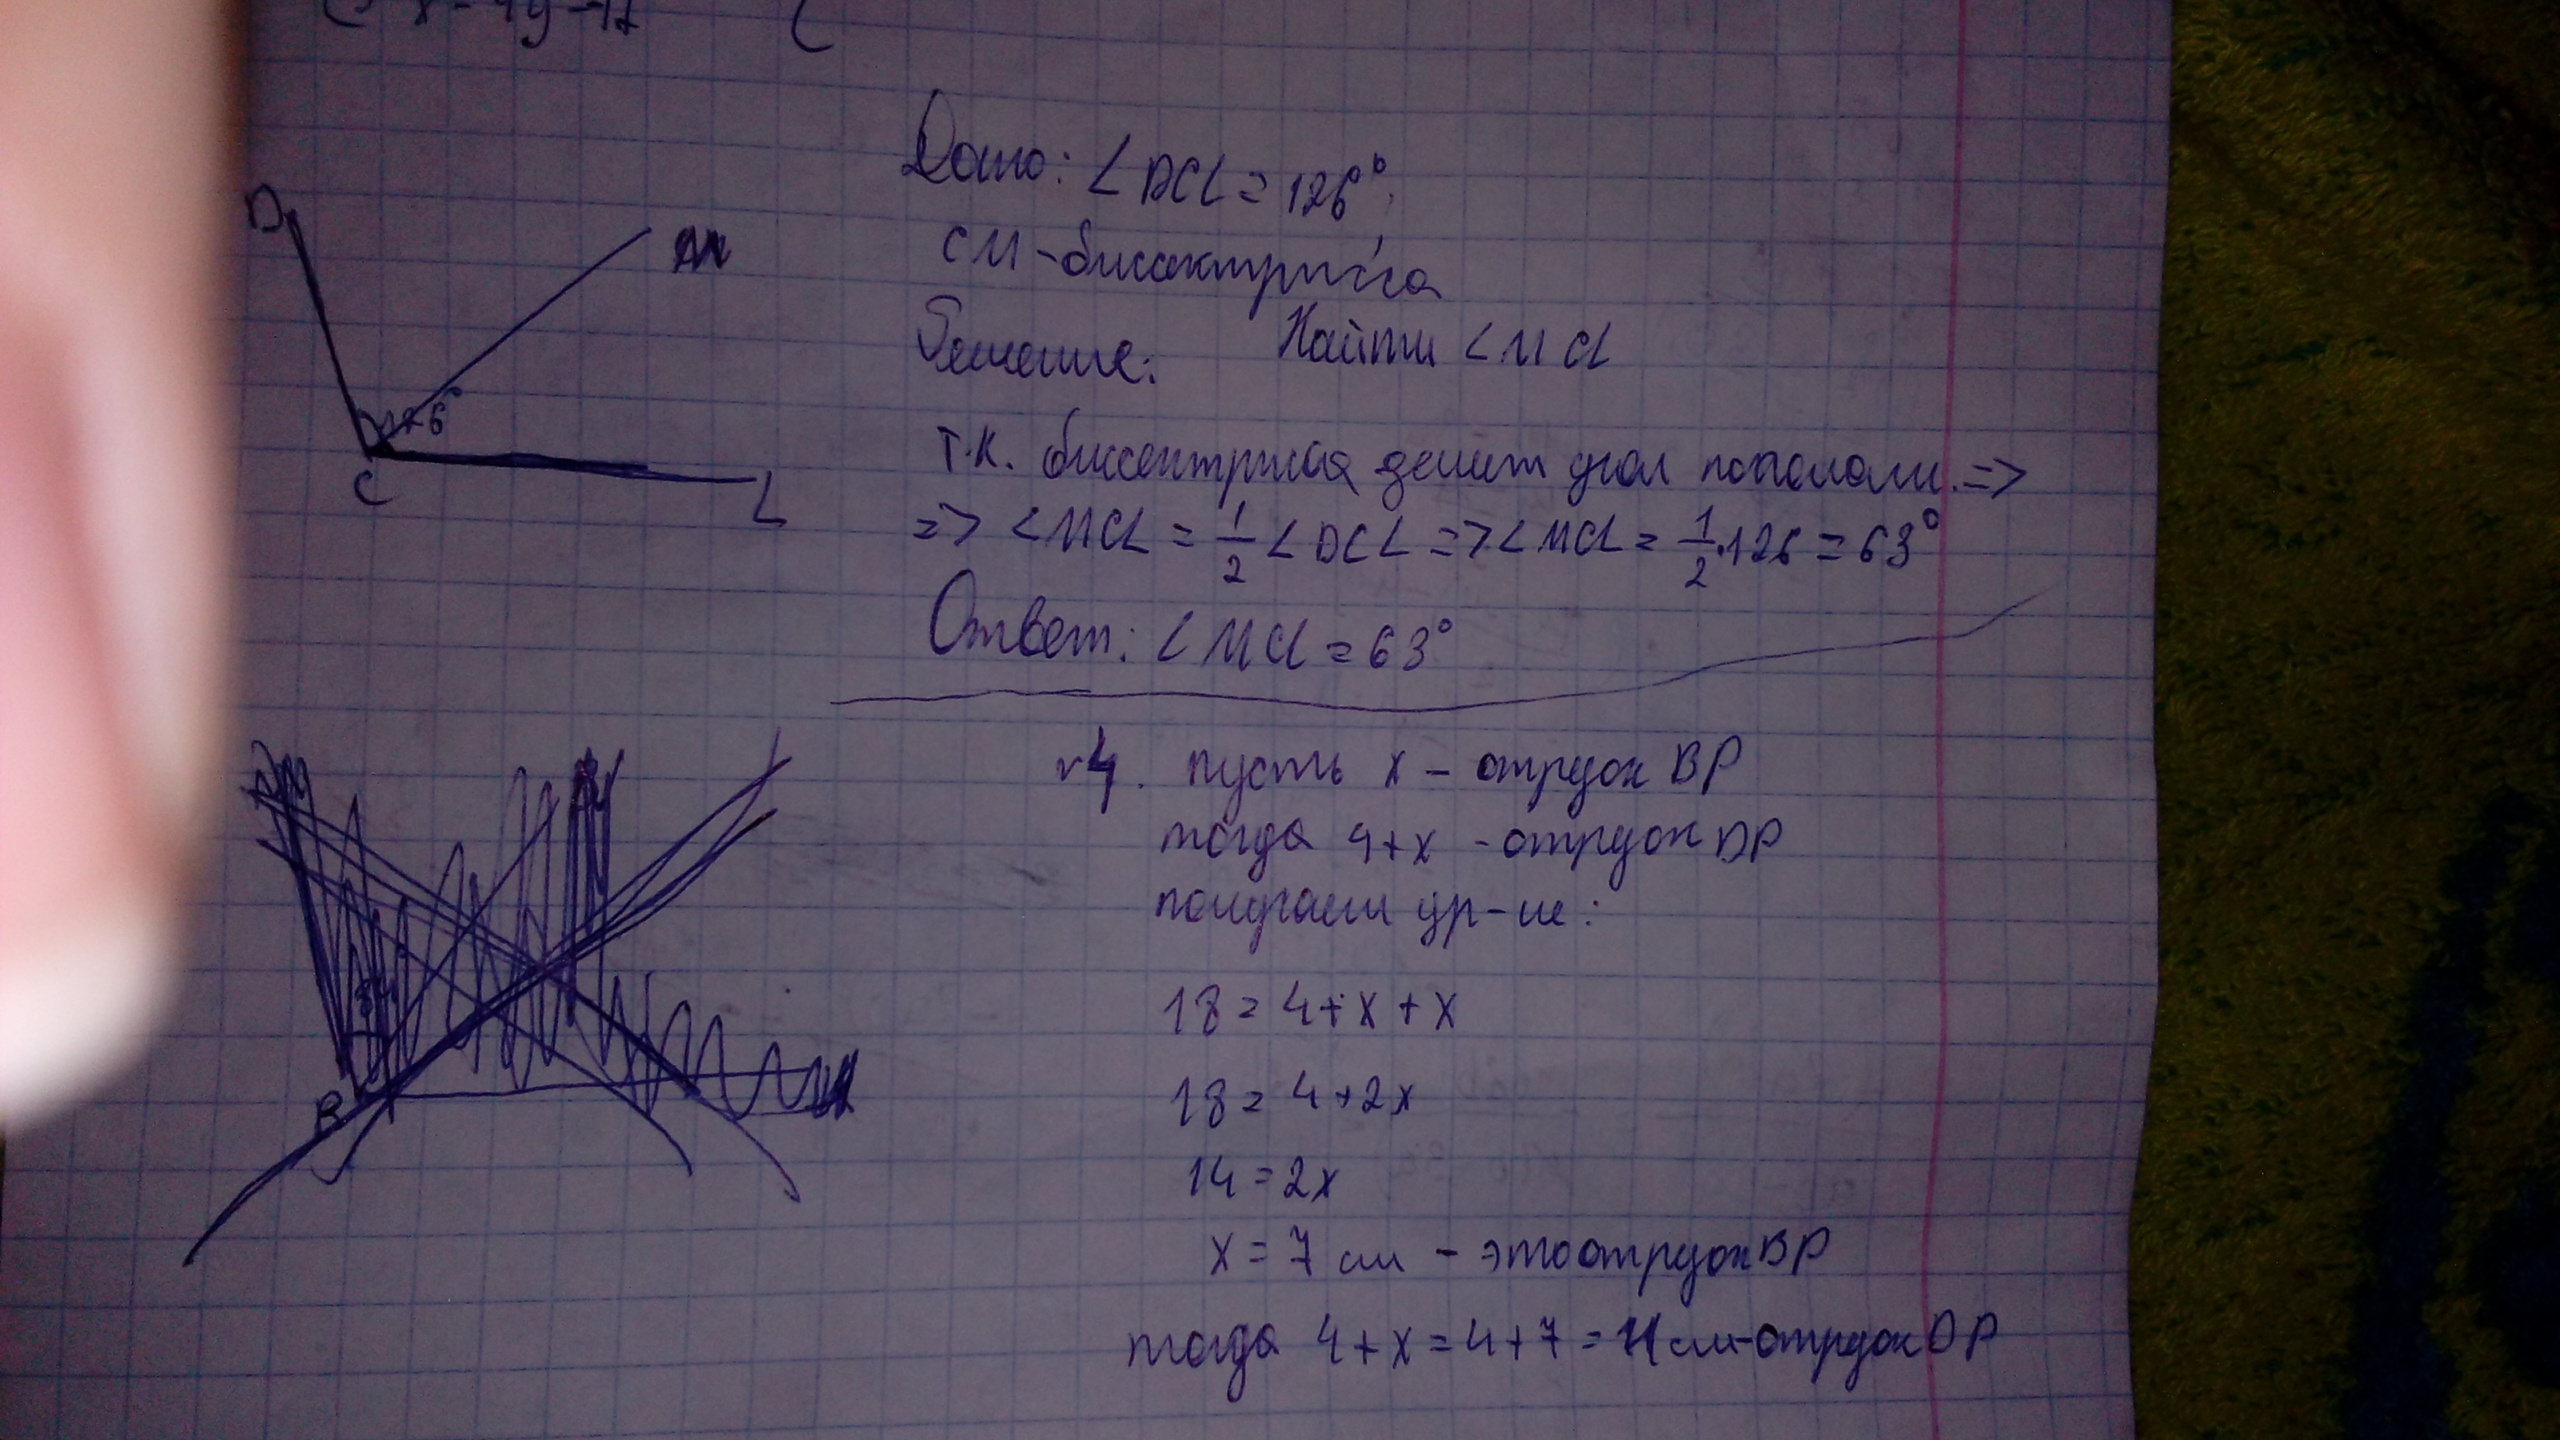 x - 4y = 17
D
M
126°
C
L
Дано: ∠DCL = 126°;
CM - биссектриса
Решение: Найти ∠MCL
Т.К. биссектриса делит угол пополам. =>
=> ∠MCL = 1/2 ∠DCL => ∠MCL = 1/2 · 126 = 63°
Ответ: ∠MCL = 63°
B
№4. пусть x - отрезок BP
тогда 4+x - отрезок DP
получаем ур-ие:
18 = 4 + x + x
18 = 4 + 2x
14 = 2x
x = 7 см - это отрезок BP
тогда 4 + x = 4 + 7 = 11 см - отрезок DP